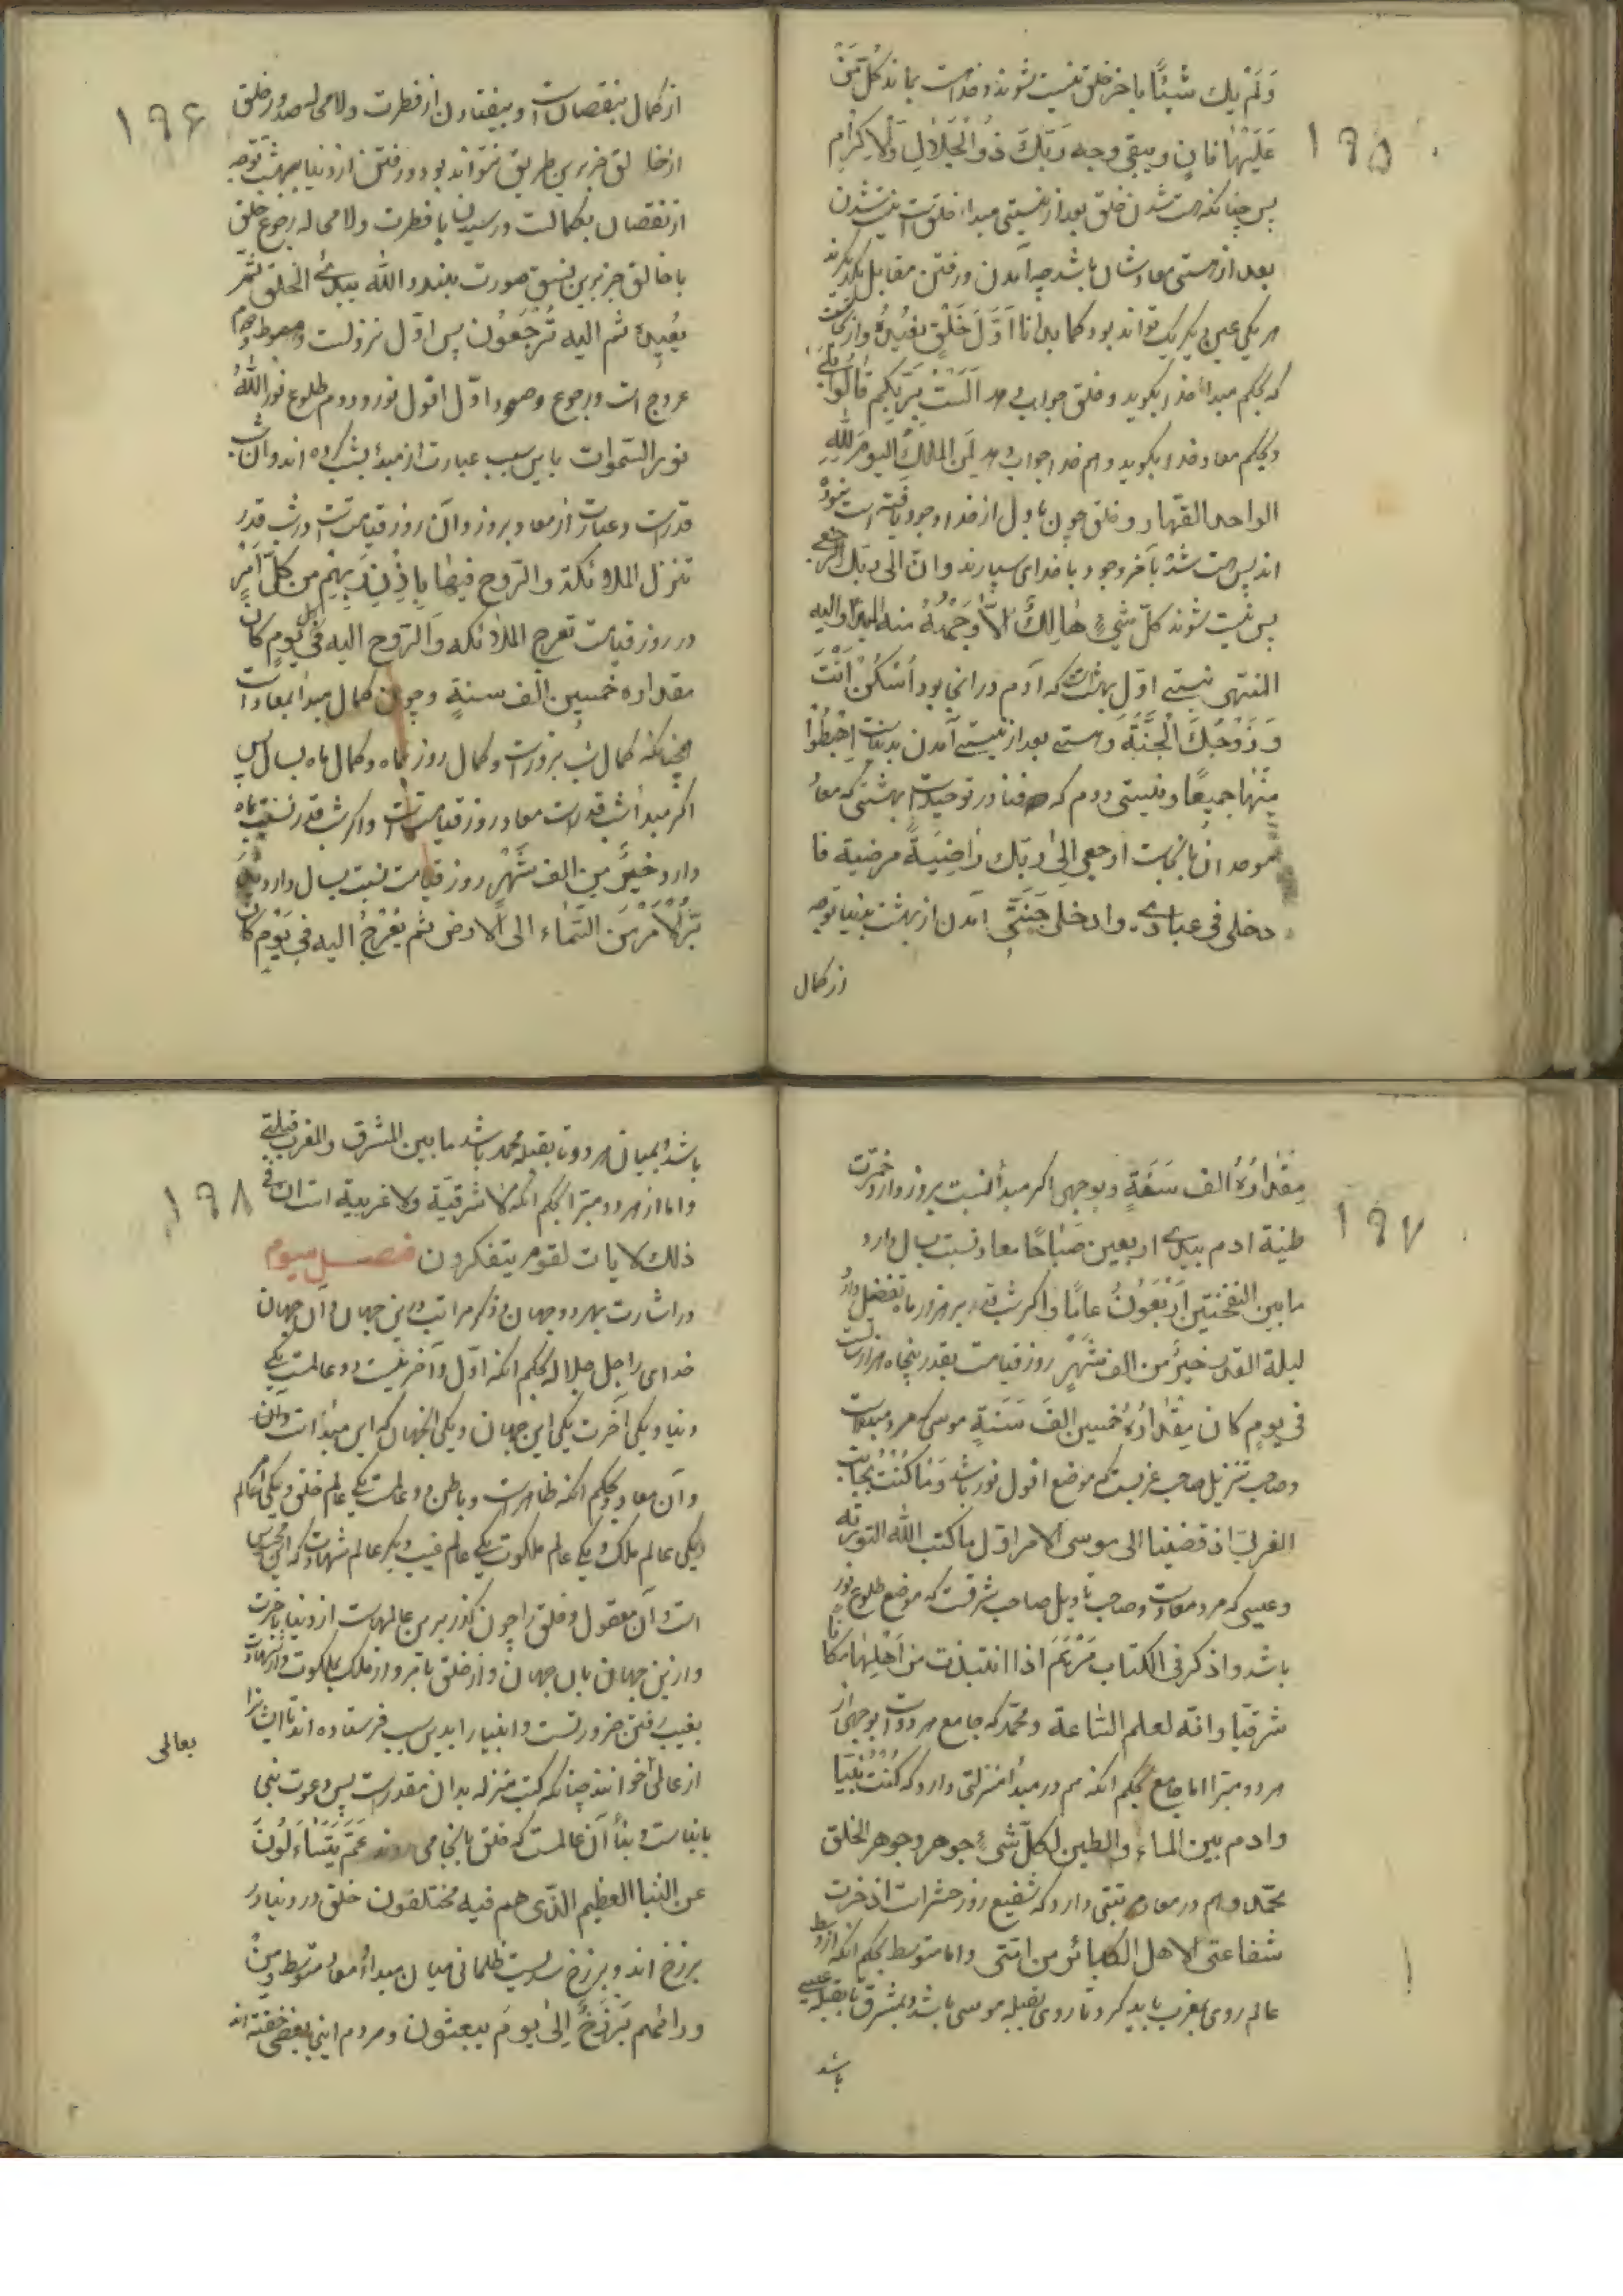 ۱۹۵
وَلَمْ يَك شَيْئًا بآخر خلق نیست شوند و خداست بماند كُلُّ مَنْ
عَلَيْهَا فَانٍ ويبقى وجه رَبِّكَ ذُو الْجَلَالِ وَالْاِكْرَامِ
پس چنانکه هست شدن خلق بعد از نیستی مبدأ خلق است نیست شدن
بعد از هستی معاد ایشان باشد چه آمدن و رفتن مقابل یکدیگرند
هر یکی عین دیگر یک تواند بود كما بدأنا اَوَّلَ خَلْقٍ نُعِيدُهُ و از اینجاست
که بحکم مبدأ خدا بگوید و خلق جواب دهد اَلَسْتُ بِرَبِّكُمْ قَالُوا بَلَى
و بحکم معاد خدا بگوید و هم خدا جواب دهد لِمَنِ الملك اليومَ لِلّٰهِ
الواحد القهار و خلق چون باول از خدا وجود یافته است نبوده
اند پس هست شده بآخر وجود با خدای سپارند و انّ الى ربك الرجعى
پس نیست شوند كلّ شيءٍ هَالِكٌ اِلَّا وَجْهُهُ منه المبدأ واليه
المنتهى نیستی اول بهشت است که آدم در انجا بود اُسْكُنْ اَنْتَ
وَ زَوْجُكَ الْجَنَّةَ و هستی بعد از نیستی آمدن بدنیاست اِهْبِطُوا
مِنْهَا جَمِيعًا و نیستی دوم که فنا در توحید است بهشتی که معاد
موحدان بانجاست ارجعي اِلى ربّك رَاضِيَةً مرضية فا
دخلى فى عبادى وادخلى جَنَّتِى آمدن از بهشت بدنیا توجه
از کمال
۱۹۶
از کمال بنقصان است و بیفتادن از فطرت و لامحاله صدور خلق
از خالق جز برین طریق نتواند بود و رفتن از دنیا ببهشت توجه
از نقصان بکمالست و رسیدن با فطرت و لامحاله رجوع خلق
با خالق جز برین نسق صورت نبندد الله يبدئ الخلق ثمّ
يُعيده ثم اليه تُرْجَعُون پس اوّل نزولست و هبوط و دوم
عروج است و رجوع و صعود اوّل افول نور و دوم طلوع نور اللّٰهُ
نور السّموات باین سبب عبارت از مبدأ بشب کرده اند و آن شب
قدر است و عبارت از معاد بروز و آن روز قیامت است در شب قدر
تنزل الملائكة والرّوح فيها بِاِذْنِ رَبِّهِمْ من كلّ اَمْرٍ
در روز قیامت تعرج الملائكه والرّوح اليه في يومٍ كان
مقداره خمسين الف سنةٍ و چون کمال مبدأ بمعاد است
چنانکه کمال شب بروز است و کمال روز بماه و کمال ماه بسال پس
اگر مبدأ شب قدر است معاد روز قیامت است و اگر شب قدر نسبت بماه
دارد خَيْرٌ مِن الف شَهْرٍ روز قیامت نسبت بسال دارد يُدَ
بِّرُ الْاَمْرَ مِنَ السَّمَاء الى الْاَرض ثم يَعْرُجُ اليه فى يَوْمٍ كان
۱۹۷
مِقْدَارُهُ الف سَنَةٍ و بوجهی اگر مبدأ نسبت بروز دارد خمّرت
طينة ادم بيدى اربعين صَبَاحًا معاد نسبت بسال دارد
ما بين النفختين اَرْبَعُونَ عامًا و اگر شب قدر بر هزار ماه تفضل دارد
ليلة القدر خيرٌ من الف شَهْرٍ روز قیامت بقدر پنجاه هزار سالست
فى يومٍ كان مِقْدَارُهُ خمسين الفَ سَنَةٍ موسی که مرد مبدأست
و صاحب تنزیل صاحب غربیست که موضع افول نور باشد وَمَا كُنْتَ بِجَانِبِ
الغربىّ اذ قضينا الى موسى الامر اوّل ما كتب اللّٰه التوریة
و عیسی که مرد معاد است و صاحب تاویل صاحب شرقست که موضع طلوع نور
باشد واذكر فى الكتاب مَرْيَمَ اذ انتبذت من اَهْلِهَا مكانا
شرقيا وانّه لعلم السّاعة و محمّد که جامع هر دو است و بوجهی از
هر دو مبرّا اما جامع بحکم انکه هم در مبدأ منزلتی دارد که كُنْتُ نَبِيّا
وادم بين الماء والطين لكلّ شىءٍ جوهر وجوهر الخلق
محمّد و هم در معاد مرتبتی دارد که شفیع روز حشر است اذخرت
شفاعتى لاهل الكبائر من امّتى و اما متوسط بحکم انکه از وسط
عالم روی بمغرب باید کرد تا روی بقبله موسی باشد و بمشرق تا بقبله عیسی
باشد
۱۹۸
باشد و بمیان هر دو تا بقبله محمد باشد ما بين المشرق والمغرب قبلتى
و اما از هر دو مبرّا بحکم انکه لا شرقيّة ولا غربية است ان فى
ذلك لايات لقوم يتفكرون فصل سیوم
در اشارت بهر دو جهان و ذکر مراتب درین جهان و آن جهان
خدای را جل جلاله بحکم انکه اوّل و آخر نیست دو عالمست یکی
دنیا و یکی آخرت یکی این جهان و یکی انجهان که این مبدأ است و آن
و آن معاد و بحکم انکه ظاهر است و باطن دو عالمست یکی عالم خلق و یکی عالم امر
یکی عالم ملک و یکی عالم ملکوت یکی عالم غیب و دیگر عالم شهادت که این محسوس
است و آن معقول و خلق را چون گذر بر هر عالمهاست از دنیا باخرت
و ازین جهان بان جهان و از خلق بامر و از ملک بملکوت و از شهادت
بغیب رفتن ضرور تست و انبیا را بدین سبب فرستاده اند تا ایشانرا
بعالمی
از عالمی خوانند چنانکه کتب منزله بدان مقدر است پس دعوت نبی
بانباست و نبأ آن عالمست که خلق بانجا می روند عَمَّ يَتَسَاءَلُونَ
عن النبأ العظيم الّذى هم فيه مختلفون خلق در دنیا در
برزخ اند و برزخ سدیست ظلمانی میان مبدأ و معاد متوسط وَمِنْ
ورائهم بَرْزَخٌ اِلَى يومِ يبعثون و مردم اینجا بعضی خفته اند